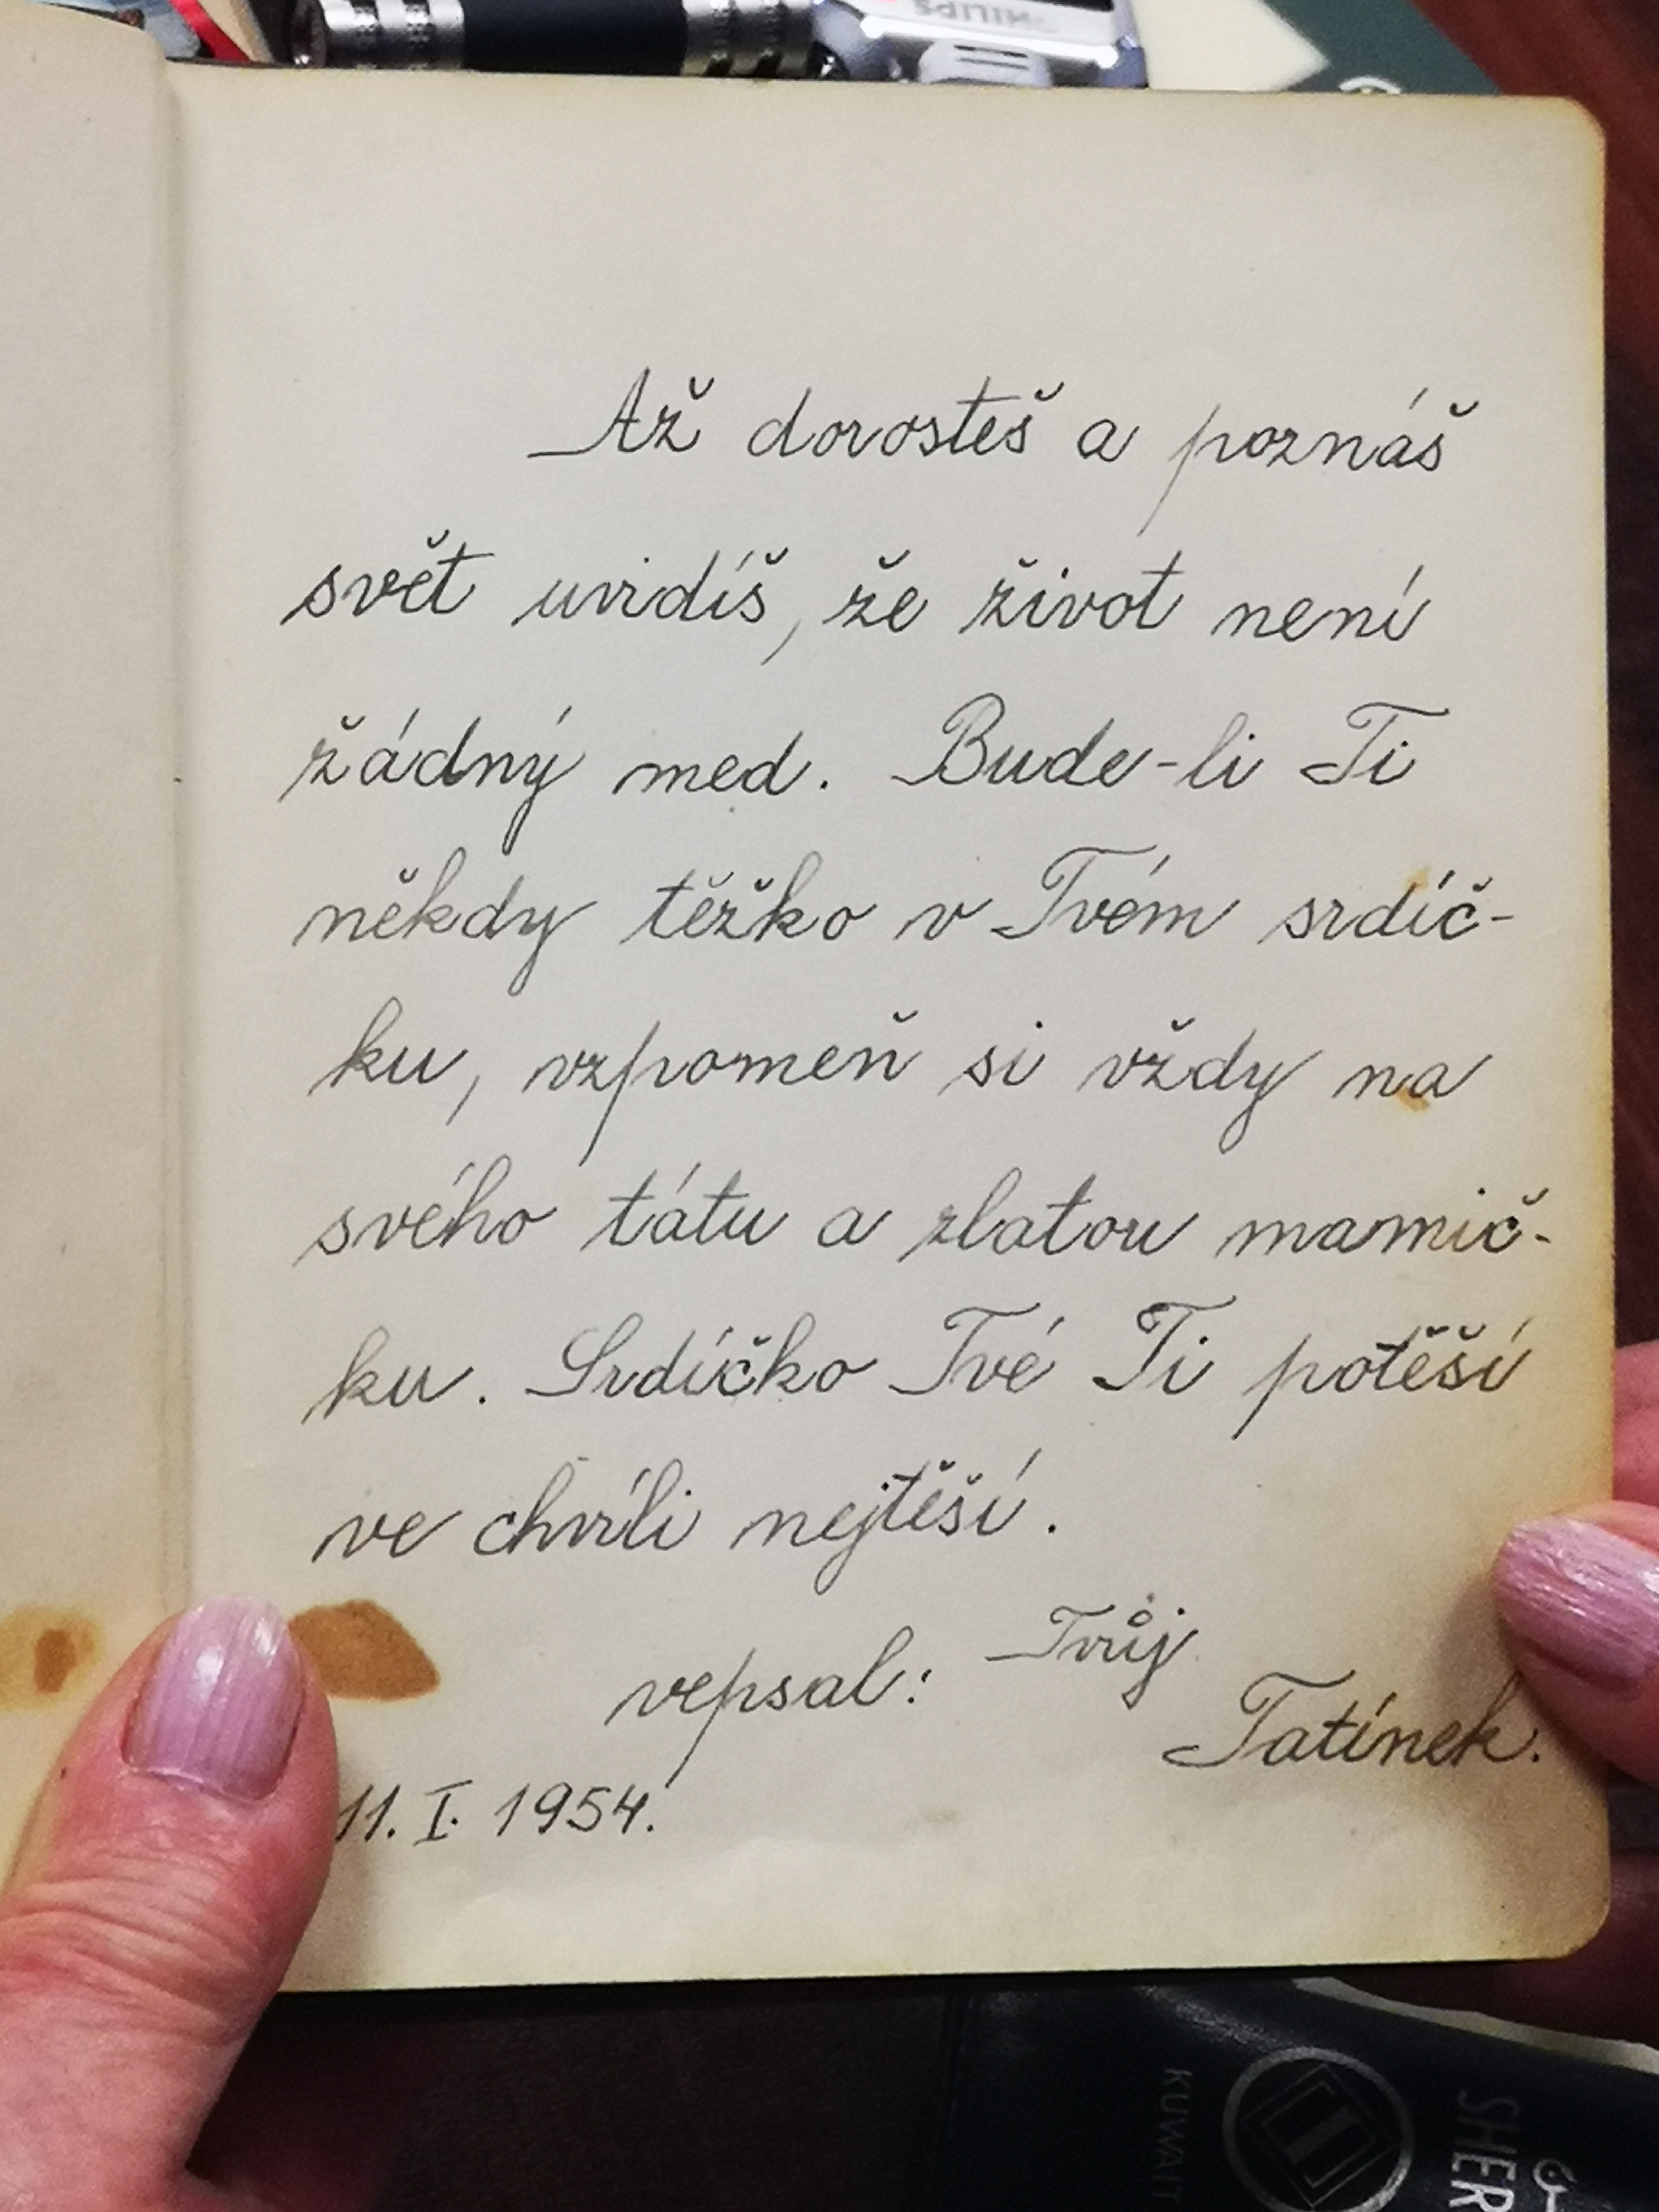 PHILIPS
Až dorosteš a poznáš
svět uvidíš, že život není
žádný med. Bude-li Ti
někdy těžko v Tvém srdíč-
ku, vzpomeň si vždy na
svého tátu a zlatou mamič-
ku. Srdíčko Tvé Ti potěší
ve chvíli nejtěší.
vepsal: Tvůj
Tatínek.
11. I. 1954.
KUWAIT
SHER